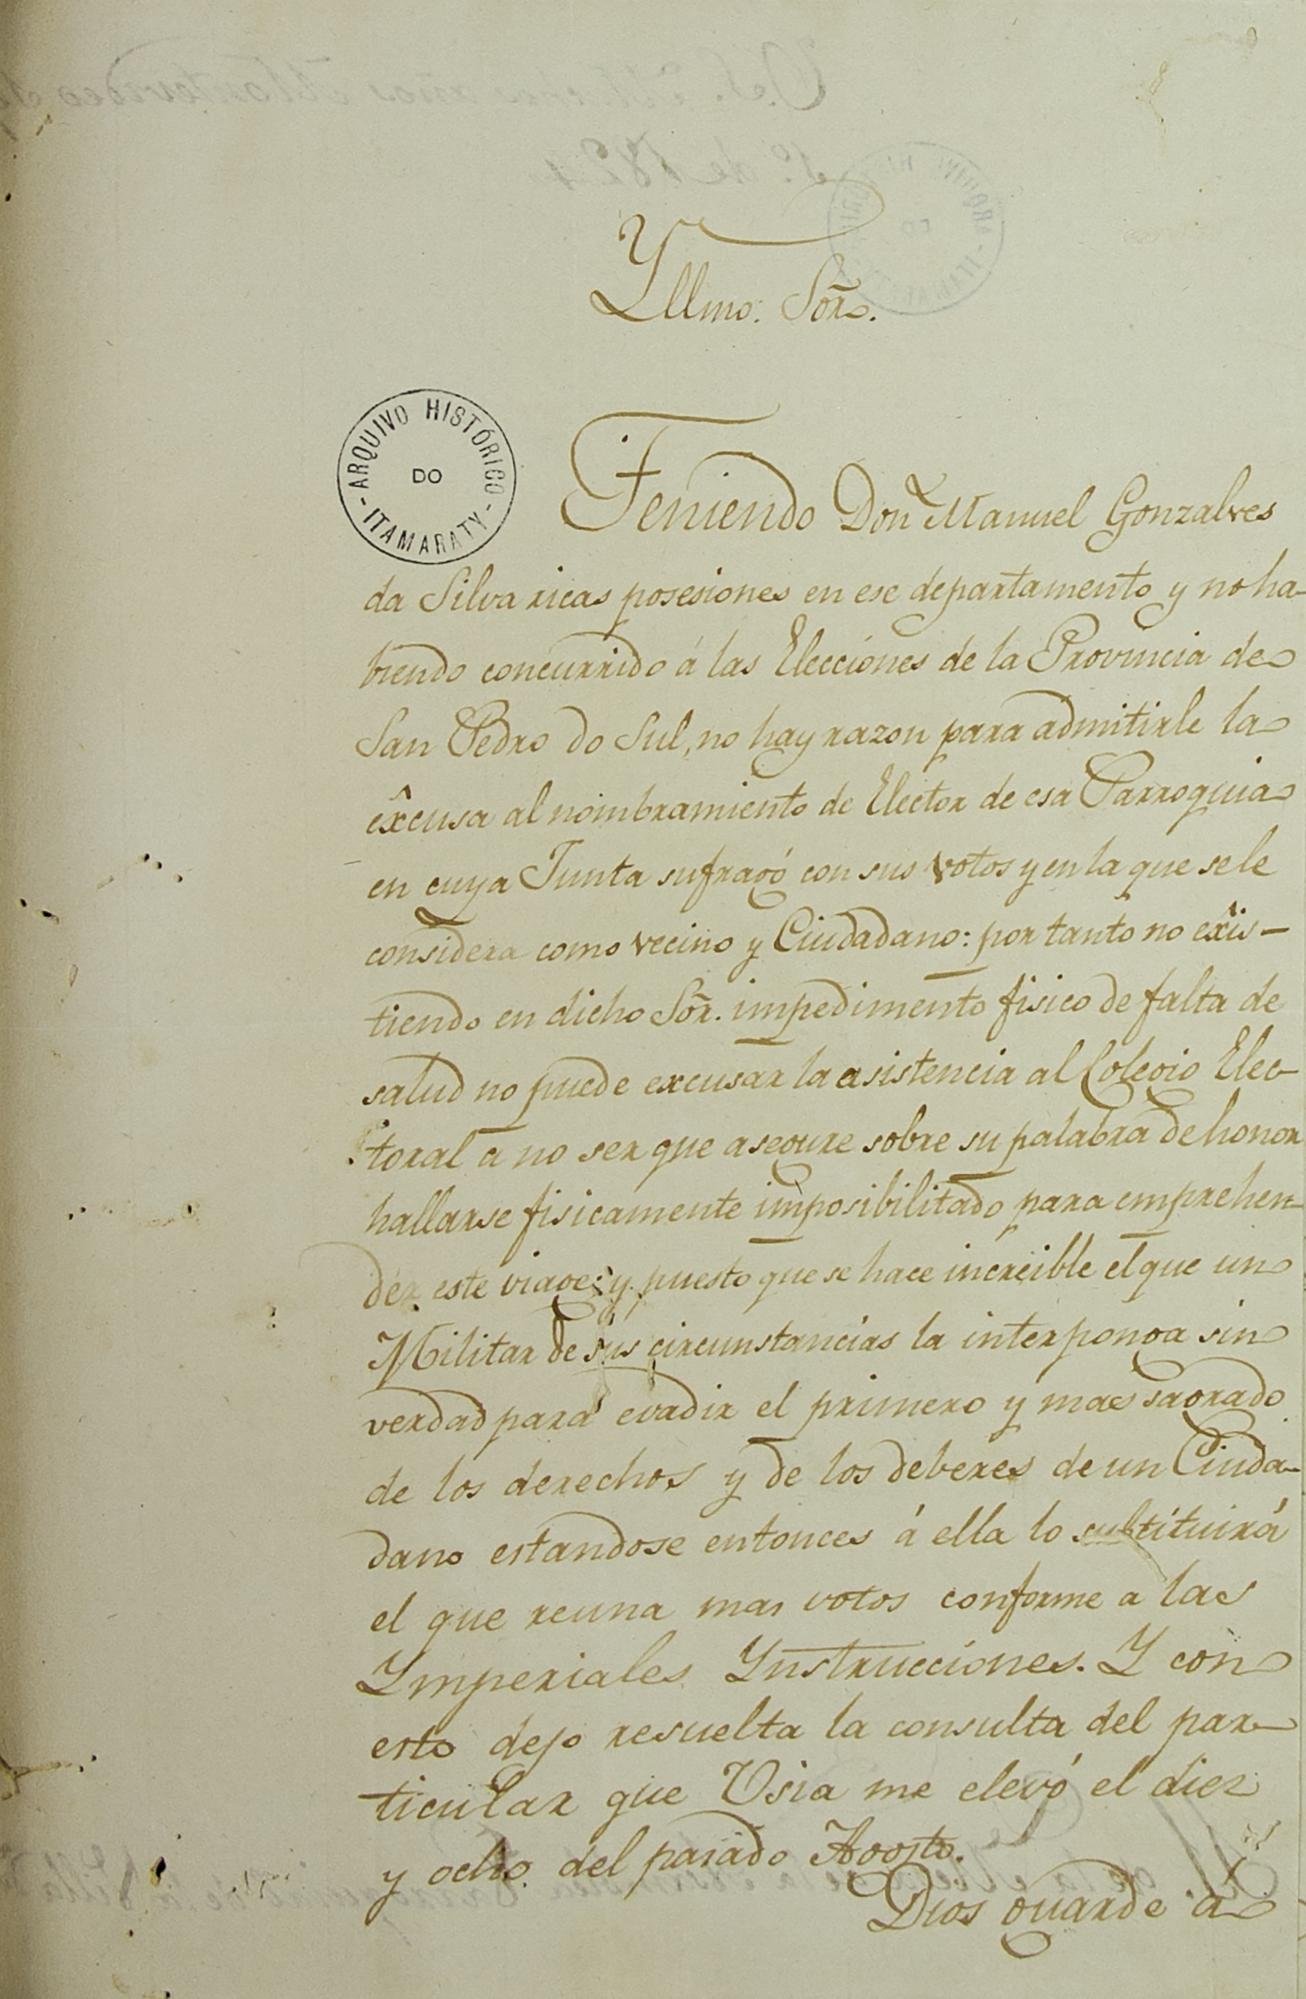 Yllmo. Sor̃.
ARQUIVO HISTÓRICO
DO
- ITAMARATY -
Teniendo Don Manuel Gonzalves
da Silva ricas posesiones en ese departamento y no ha-
biendo concurrido á las Elecciones de la Provincia de
San Pedro do Sul, no hay razon para admitirle la
êxcusa al nombramiento de Elector de esa Parroquia
en cuya Junta sufragó con sus votos y en la que se le
considera como vecino y Ciudadano: por tanto no exîs-
tiendo en dicho Sor̃. impedimento fisico de falta de
salud no puede excusar la asistencia al Colegio Elec-
toral a no ser que asegure sobre su palabra de honor
hallarse fisicamente imposibilitado para emprehen-
der este viage: y puesto que se hace increible el que un
Militar de sus circunstancias la interponga sin
verdad para evadir el primero y mas sagrado
de los derechos y de los deberes de un Ciuda-
dano estandose entonces á ella lo substituirá
el que reuna mas votos conforme a las
Ymperiales Ynstrucciones. Y con
esto dejo resuelta la consulta del par-
ticular que Usia me elevó el diez
y ocho del pasado Agosto.
Dios guarde á